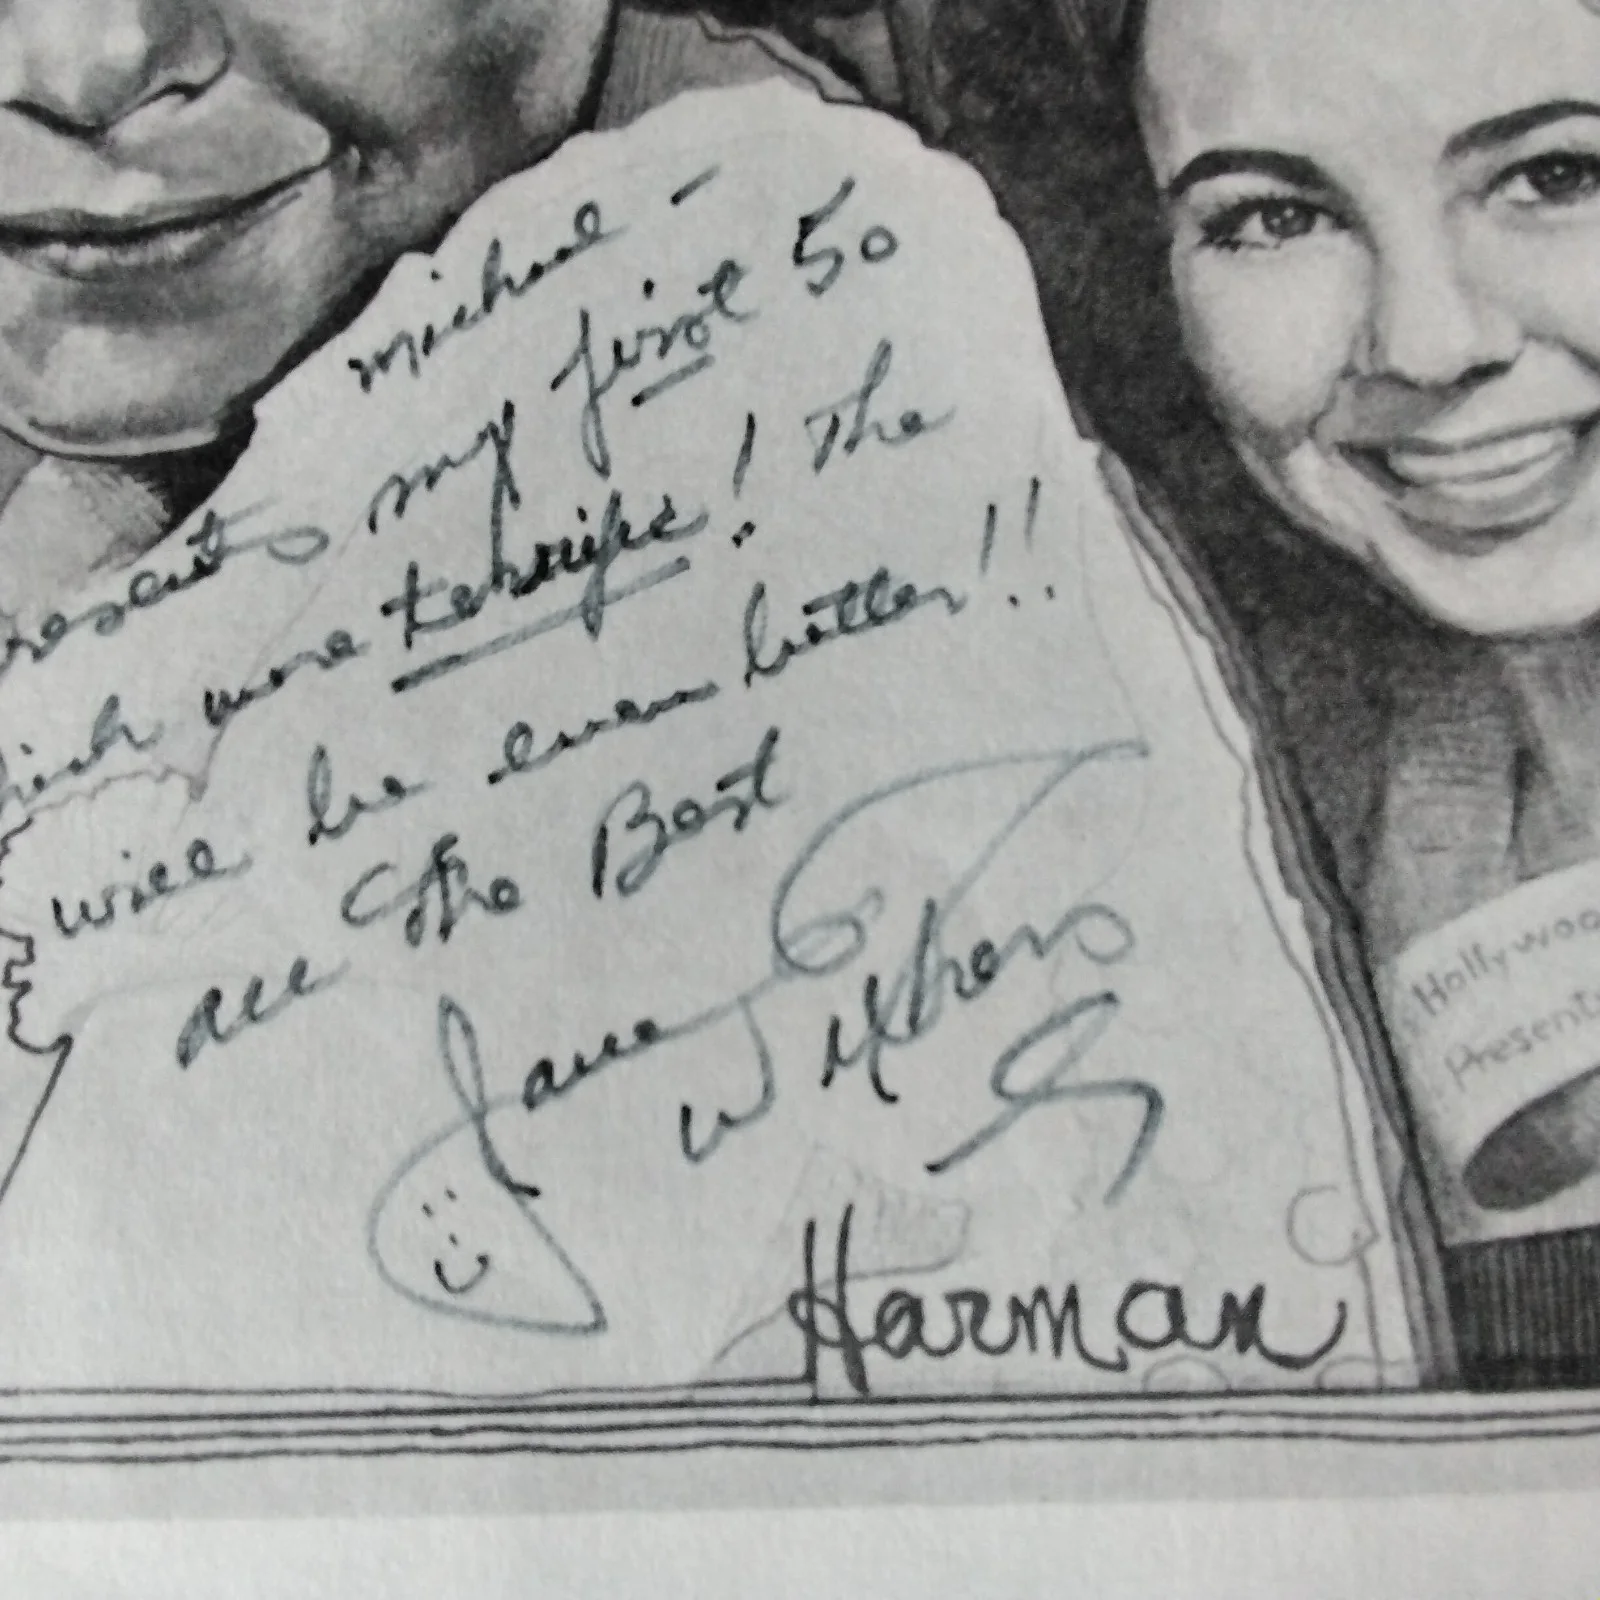 Michael -
resents my first 50
hich were terrific! The
will be even better!!
All the Best
Jane Withers
Harman
Hollywoo
Presents